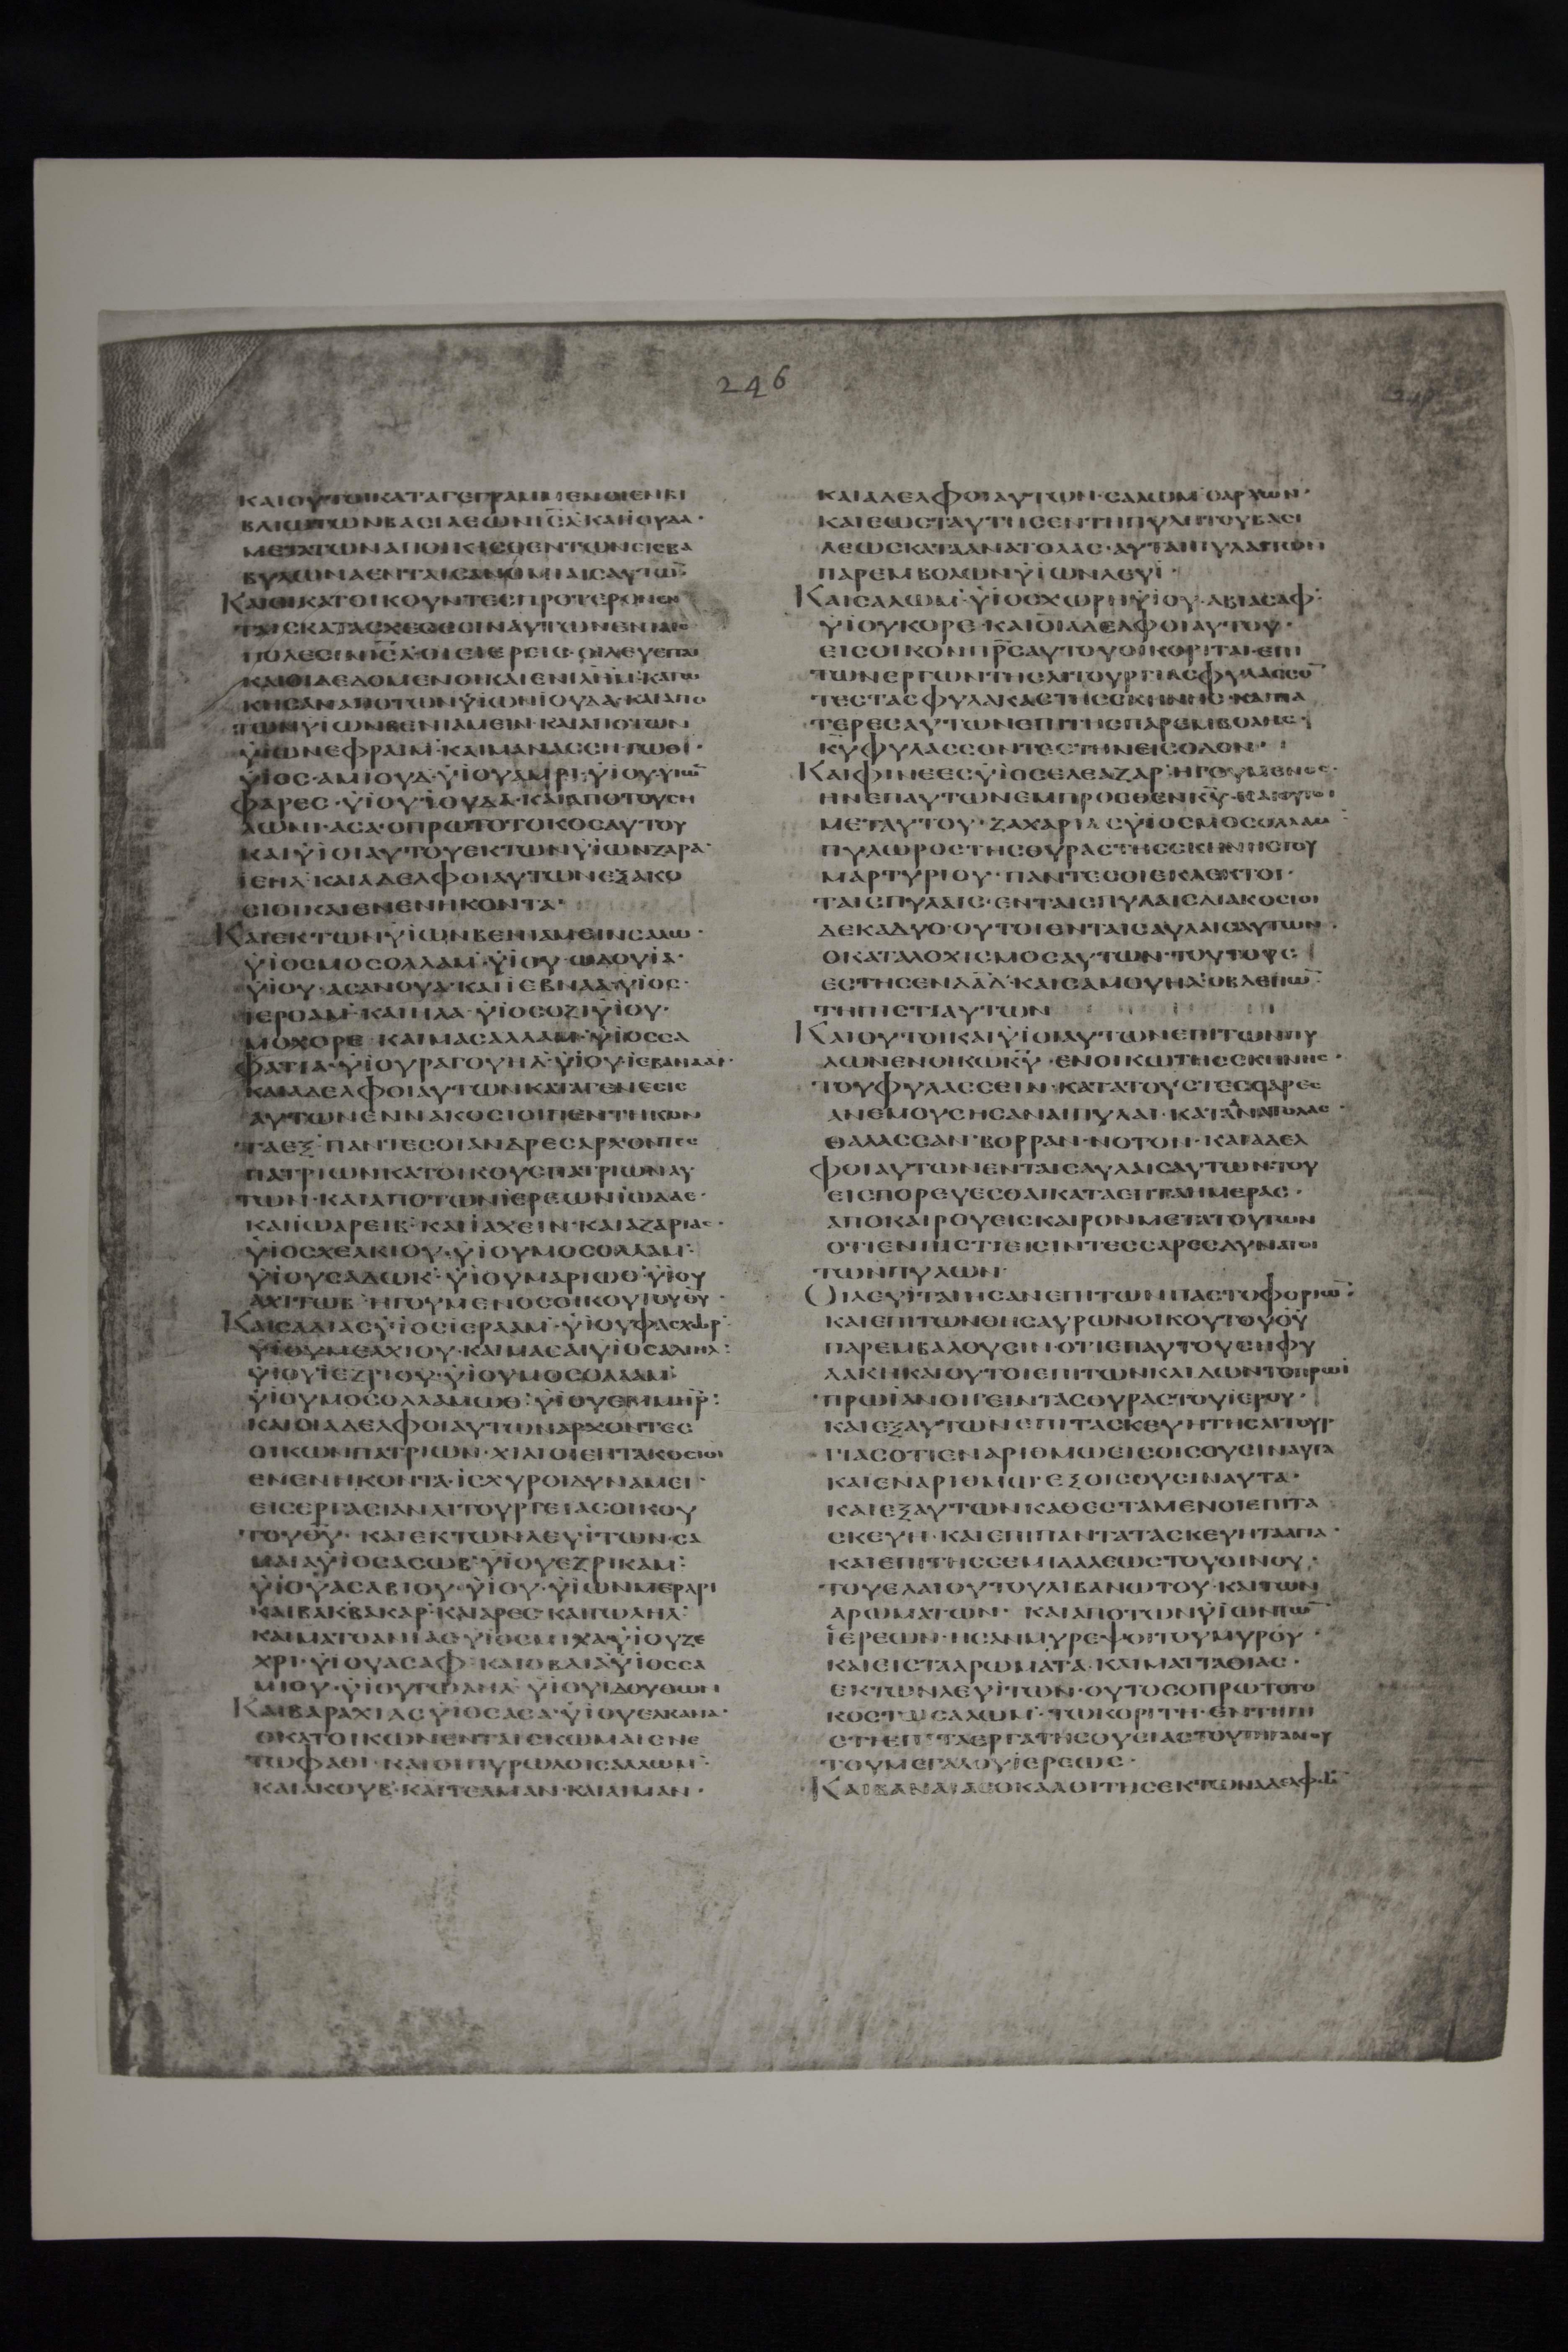 246
ΚΑΙΟΥΤΟΙΚΑΤΑΓΕΓΡΑΜΜΕΝΟΙΕΝΒΙ
ΒΛΙΩΤΩΝΒΑΣΙΛΕΩΝΙΣΛ·ΚΑΙΪΟΥΔΑ·
ΜΕΤΑΤΩΝΑΠΟΙΚΙΣΘΕΝΤΩΝΕΙΣΒΑ
ΒΥΛΩΝΑΕΝΤΑΙΣΑΝΟΜΙΑΙΣΑΥΤΩ̅
ΚΑΙΟΙΚΑΤΟΙΚΟΥΝΤΕΣΠΡΟΤΕΡΟΝΕΝ
ΤΑΙΣΚΑΤΑΣΧΕΣΕΣΙΝΑΥΤΩΝΕΝΤΑΙΣ
ΚΗΣΑΝΑΠΟΤΩΝΫΙΩΝΪΟΥΔΑ·ΚΑΙΑΠΟ
ΤΩΝΫΙΩΝΒΕΝΙΑΜΕΙΝ·ΚΑΙΑΠΟΤΩΝ
ΫΙΩΝΕΦΡΑΙΜ·ΚΑΙΜΑΝΑΣΣΗ·ΓΩΘΙ·
ΫΙΟΣ·ΑΜΙΟΥΔ·ΫΙΟΥΑΜΡΙ·ΫΙΟΥ·ΥΙΩ̅
ΦΑΡΕΣ·ΫΙΟΥΪΟΥΔΑ·ΚΑΙΑΠΟΤΟΥΣΗ
ΛΩΝΙ·ΑΣΑ·ΟΠΡΩΤΟΤΟΚΟΣΑΥΤΟΥ
ΚΑΙΫΙΟΙΑΥΤΟΥΕΚΤΩΝΫΙΩΝΖΑΡΑ·
ΪΕΗΛ·ΚΑΙΑΔΕΛΦΟΙΑΥΤΩΝΕΞΑΚΟ
ΣΙΟΙΚΑΙΕΝΕΝΗΚΟΝΤΑ·
ΚΑΙΕΚΤΩΝΫΙΩΝΒΕΝΙΑΜΕΙΝΣΑΛΩ·
ΫΙΟΣΜΟΣΟΛΛΑΜ·ΫΙΟΥ·ΩΔΟΥΙΑ·
ΫΙΟΥ·ΑΣΑΝΟΥΑ·ΚΑΙΪΕΒΝΑΑ·ΥΙΟΣ·
ΪΕΡΟΑΜ·ΚΑΙΗΛΑ·ΫΙΟΣΟΖΙΫΙΟΥ·
ΜΟΧΟΡΕ·ΚΑΙΜΑΣΑΛΛΑΜ·ΫΙΟΣΣΑ
ΦΑΤΙΑ·ΫΙΟΥΡΑΓΟΥΗΛ·ΫΙΟΥ·ΪΕΒΑΝΑΑΙ·
ΚΑΙΑΔΕΛΦΟΙΑΥΤΩΝΚΑΤΑΓΕΝΕΣΙΣ
ΑΥΤΩΝΕΝΝΑΚΟΣΙΟΙΠΕΝΤΗΚΟΝ
ΤΑΕΞ·ΠΑΝΤΕΣΟΙΑΝΔΡΕΣΑΡΧΟΝΤΕΣ
ΠΑΤΡΙΩΝΚΑΤΟΙΚΟΥΣΠΑΤΡΙΩΝΑΥ
ΤΩΝ·ΚΑΙΑΠΟΤΩΝΪΕΡΕΩΝΪΩΔΑΕ·
ΚΑΙΪΩΑΡΕΙΒ·ΚΑΙΪΑΧΕΙΝ·ΚΑΙΑΖΑΡΙΑΣ·
ΫΙΟΣΧΕΛΚΙΟΥ·ΫΙΟΥΜΟΣΟΛΛΑΜ·
ΫΙΟΥΣΑΔΩΚ·ΫΙΟΥΜΑΡΙΩΘ·ΫΙΟΥ
ΑΧΙΤΩΒ·ΗΓΟΥΜΕΝΟΣΟΙΚΟΥΤΟΥΘ̅Υ̅·
ΚΑΙΣΑΔΙΑΣΫΙΟΣΪΕΡΑΑΜ·ΫΙΟΥΦΑΣΧΩΡ·
ΫΙΟΥΜΕΛΧΙΟΥ·ΚΑΙΜΑΣΑΙΫΙΟΣΑΔΙΗΛ·
ΫΙΟΥΪΕΖΡΙΟΥ·ΫΙΟΥΜΟΣΟΛΛΑΜ·
ΫΙΟΥΜΟΣΟΛΛΑΜΩΘ·ΫΙΟΥΕΜΜΗΡ·
ΚΑΙΟΙΑΔΕΛΦΟΙΑΥΤΩΝΑΡΧΟΝΤΕΣ
ΟΙΚΩΝΠΑΤΡΙΩΝ·ΧΙΛΙΟΙΕΠΤΑΚΟΣΙΟΙ
ΕΝΕΝΗΚΟΝΤΑ·ΪΣΧΥΡΟΙΔΥΝΑΜΕΙ·
ΕΙΣΕΡΓΑΣΙΑΝΛΙΤΟΥΡΓΕΙΑΣΟΙΚΟΥ
ΤΟΥΘ̅Υ̅·ΚΑΙΕΚΤΩΝΛΕΥΪΤΩΝ·ΣΑ
ΜΑΙΑΫΙΟΣΑΣΩΒ·ΫΙΟΥΕΖΡΙΚΑΜ·
ΫΙΟΥΑΣΑΒΙΟΥ·ΫΙΟΥ·ΫΙΩΝΜΕΡΑΡΙ
ΚΑΙΒΑΚΒΑΚΑΡ·ΚΑΙΑΡΕΣ·ΚΑΙΓΩΛΗΛ·
ΚΑΙΜΑΤΘΑΝΙΑΣ·ΫΙΟΣΜΙΧΑ·ΫΙΟΥΖΕ
ΧΡΙ·ΫΙΟΥΑΣΑΦ·ΚΑΙΟΒΔΙΑ·ΫΙΟΣΣΑ
ΜΙΟΥ·ΫΙΟΥΓΩΛΗΛ·ΫΙΟΥΙΔΟΥΘΩΝ
ΚΑΙΒΑΡΑΧΙΑΣΫΙΟΣΑΣΑ·ΫΙΟΥΕΛΚΑΝΑ·
ΟΚΑΤΟΙΚΩΝΕΝΤΑΙΣΚΩΜΑΙΣΝΕ
ΤΩΦΑΘΙ·ΚΑΙΟΙΠΥΡΩΛΟΙΣΑΛΛΩΜ·
ΚΑΙΑΚΟΥΒ·ΚΑΙΤΕΛΜΑΝ·ΚΑΙΑΙΜΑΝ·
ΚΑΙΑΔΕΛΦΟΙΑΥΤΩΝ·ΣΑΛΩΜΟΑΡΧΩΝ·
ΚΑΙΕΩΣΤΑΥΤΗΣΕΝΤΗΠΥΛΗΤΟΥΒΑΣΙ
ΛΕΩΣΚΑΤΑΑΝΑΤΟΛΑΣ·ΑΥΤΑΙΠΥΛΑΙΤΩΝ
ΠΑΡΕΜΒΟΛΩΝΫΙΩΝΛΕΥΪ·
ΚΑΙΣΑΛΩΜ·ΫΙΟΣΧΩΡΗΫΙΟΥ·ΑΒΙΑΣΑΦ·
ΫΙΟΥΚΟΡΕ·ΚΑΙΟΙΑΔΕΛΦΟΙΑΥΤΟΥ·
ΕΙΣΟΙΚΟΝΠ̅Ρ̅Σ̅ΑΥΤΟΥΟΙΚΟΡΙΤΑΙ·ΕΠΙ
ΤΩΝΕΡΓΩΝΤΗΣΛΙΤΟΥΡΓΙΑΣΦΥΛΑΣΣΟ̅
ΤΕΣΤΑΣΦΥΛΑΚΑΣΤΗΣΣΚΗΝΗΣ·ΚΑΙΠΑ
ΤΕΡΕΣΑΥΤΩΝΕΠΙΤΗΣΠΑΡΕΜΒΟΛΗΣ·
Κ̅Υ̅ΦΥΛΑΣΣΟΝΤΕΣΤΗΝΕΙΣΟΔΟΝ·
ΚΑΙΦΙΝΕΕΣΫΙΟΣΕΛΕΑΖΑΡ·ΗΓΟΥΜΕΝΟΣ·
ΗΝΕΠΑΥΤΩΝΕΜΠΡΟΣΘΕΝΚ̅Υ̅·ΚΑΙΟΥΤΟΙ
ΜΕΤΑΥΤΟΥ·ΖΑΧΑΡΙΑΣΫΙΟΣΜΟΣΟΛΛΑΜ
ΠΥΛΩΡΟΣΤΗΣΘΥΡΑΣΤΗΣΣΚΗΝΗΣΤΟΥ
ΜΑΡΤΥΡΙΟΥ·ΠΑΝΤΕΣΟΙΕΚΛΕΚΤΟΙ·
ΤΑΙΣΠΥΛΑΙΣ·ΕΝΤΑΙΣΠΥΛΑΙΣΔΙΑΚΟΣΙΟΙ
ΔΕΚΑΔΥΟ·ΟΥΤΟΙΕΝΤΑΙΣΑΥΛΑΙΣΑΥΤΩΝ·
ΟΚΑΤΑΛΟΧΙΣΜΟΣΑΥΤΩΝ·ΤΟΥΤΟΥΣ
ΕΣΤΗΣΕΝΔ̅Α̅Δ̅·ΚΑΙΣΑΜΟΥΗΛ·ΟΒΛΕΠΩ̅
ΤΗΠΙΣΤΙΑΥΤΩΝ
ΚΑΙΟΥΤΟΙΚΑΙΫΙΟΙΑΥΤΩΝΕΠΙΤΩΝΠΥ
ΛΩΝΕΝΟΙΚΩΚ̅Υ̅·ΕΝΟΙΚΩΤΗΣΣΚΗΝΗΣ·
ΤΟΥΦΥΛΑΣΣΕΙΝ·ΚΑΤΑΤΟΥΣΤΕΣΣΑΡΕΣ
ΑΝΕΜΟΥΣΗΣΑΝΑΙΠΥΛΑΙ·ΚΑΤΑΝΑΤΟΛΑΣ·
ΘΑΛΑΣΣΑΝ·ΒΟΡΡΑΝ·ΝΟΤΟΝ·ΚΑΙΑΔΕΛ
ΦΟΙΑΥΤΩΝΕΝΤΑΙΣΑΥΛΑΙΣΑΥΤΩΝ·ΤΟΥ
ΕΙΣΠΟΡΕΥΕΣΘΑΙΚΑΤΑΕΠΤΑΗΜΕΡΑΣ·
ΑΠΟΚΑΙΡΟΥΕΙΣΚΑΙΡΟΝΜΕΤΑΤΟΥΤΩΝ
ΟΤΙΕΝΠΙΣΤΙΕΙΣΙΝΤΕΣΣΑΡΕΣΔΥΝΑΤΟΙ
ΤΩΝΠΥΛΩΝ·
ΟΙΛΕΥΪΤΑΙΗΣΑΝΕΠΙΤΩΝΠΑΣΤΟΦΟΡΙΩ̅·
ΚΑΙΕΠΙΤΩΝΘΗΣΑΥΡΩΝΟΙΚΟΥΤΟΥΘ̅Υ̅
ΠΑΡΕΜΒΑΛΟΥΣΙΝ·ΟΤΙΕΠΑΥΤΟΥΣΗΦΥ
ΛΑΚΗΚΑΙΟΥΤΟΙΕΠΙΤΩΝΚΛΙΔΩΝΤΟΠΡΩΪ
ΠΡΩΪΑΝΟΙΓΕΙΝΤΑΣΘΥΡΑΣΤΟΥΪΕΡΟΥ·
ΚΑΙΕΞΑΥΤΩΝΕΠΙΤΑΣΚΕΥΗΤΗΣΛΙΤΟΥΡ
ΓΙΑΣΟΤΙΕΝΑΡΙΘΜΩΕΙΣΟΙΣΟΥΣΙΝΑΥΤΑ
ΚΑΙΕΝΑΡΙΘΜΩΙ·ΕΞΟΙΣΟΥΣΙΝΑΥΤΑ·
ΚΑΙΕΞΑΥΤΩΝΚΑΘΕΣΤΑΜΕΝΟΙΕΠΙΤΑ
ΣΚΕΥΗ·ΚΑΙΕΠΙΠΑΝΤΑΤΑΣΚΕΥΗΤΑΑΓΙΑ·
ΚΑΙΕΠΙΤΗΣΣΕΜΙΔΑΛΕΩΣΤΟΥΟΙΝΟΥ·
ΤΟΥΕΛΑΙΟΥΤΟΥΛΙΒΑΝΩΤΟΥ·ΚΑΙΤΩΝ
ΑΡΩΜΑΤΩΝ·ΚΑΙΑΠΟΤΩΝΫΙΩΝΤΩ̅
ΪΕΡΕΩΝ·ΗΣΑΝΜΥΡΕΨΟΙΤΟΥΜΥΡΟΥ·
ΚΑΙΕΙΣΤΑΑΡΩΜΑΤΑ·ΚΑΙΜΑΤΤΑΘΙΑΣ·
ΕΚΤΩΝΛΕΥΪΤΩΝ·ΟΥΤΟΣΟΠΡΩΤΟΤΟ
ΚΟΣΤΩΣΑΛΩΜ·ΤΩΚΟΡΙΤΗ·ΕΝΤΗΠΙ
ΣΤΙΕΠΙΤΑΕΡΓΑΤΗΣΘΥΣΙΑΣΤΟΥΤΗΓΑΝΟΥ
ΤΟΥΜΕΓΑΛΟΥΪΕΡΕΩΣ·
ΚΑΙΒΑΝΑΙΑΣΟΚΑΑΘΙΤΗΣΕΚΤΩΝΑΔΕΛΦΩ̅